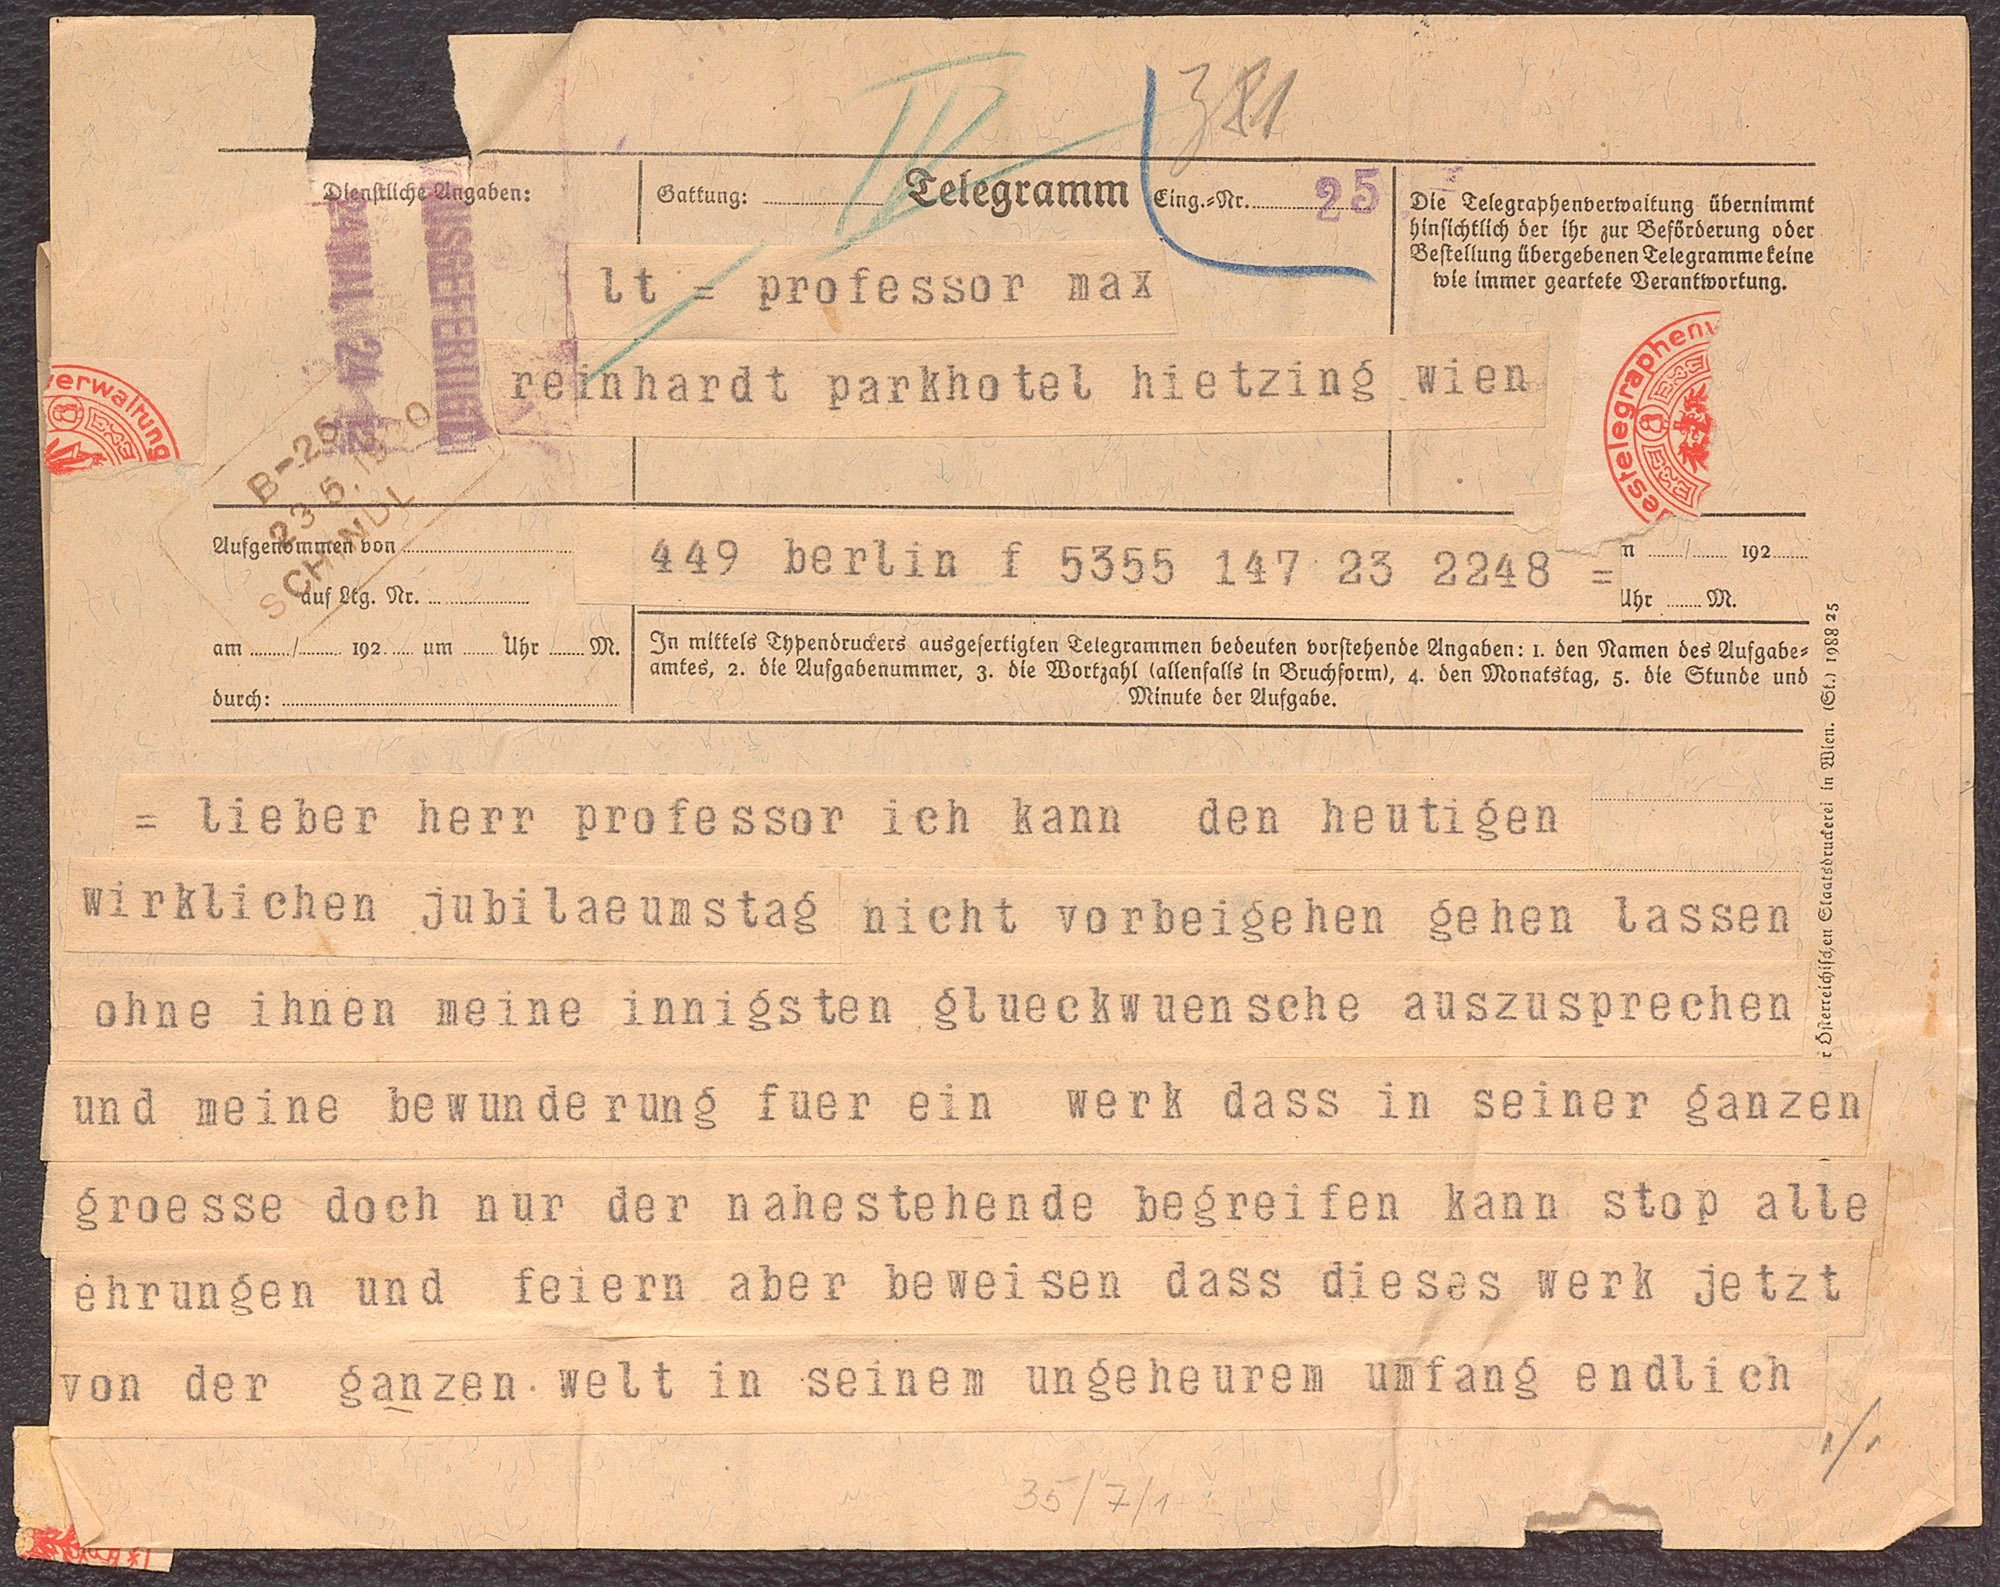 381
Dienstliche Angaben:
Gattung:
Telegramm
Eing.-Nr. 25
Die Telegraphenverwaltung übernimmt
hinsichtlich der ihr zur Beförderung oder
Bestellung übergebenen Telegramme keine
wie immer geartete Verantwortung.
lt = professor max
reinhardt parkhotel hietzing wien
erwaltung
estelegraphenv
B-25
23.5.19 0
SCHINDL
Aufgenommen von
auf Ltg. Nr.
449 berlin f 5355 147 23 2248 =
m / 192
Uhr M.
am / 192 um Uhr M.
durch:
In mittels Typendruckers ausgefertigten Telegrammen bedeuten vorstehende Angaben: 1. den Namen des Aufgabe-
amtes, 2. die Aufgabenummer, 3. die Wortzahl (allenfalls in Bruchform), 4. den Monatstag, 5. die Stunde und
Minute der Aufgabe.
r Österreichischen Staatsdruckerei in Wien. (St.) 1988 25
= lieber herr professor ich kann den heutigen
wirklichen jubilaeumstag nicht vorbeigehen gehen lassen
ohne ihnen meine innigsten glueckwuensche auszusprechen
und meine bewunderung fuer ein werk dass in seiner ganzen
groesse doch nur der nahestehende begreifen kann stop alle
ehrungen und feiern aber beweisen dass dieses werk jetzt
von der ganzen welt in seinem ungeheurem umfang endlich
1/1
35/7/1